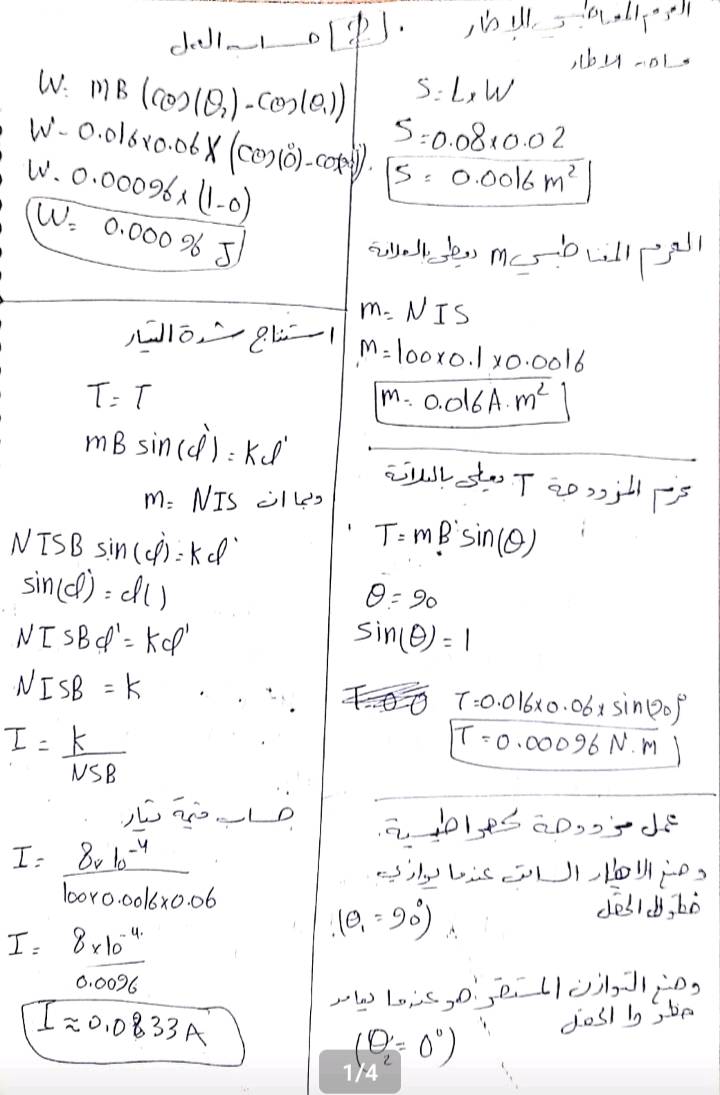 العزم المغناطيسي الإطار
مساحة الاطار
S = L x W
S = 0.08 x 0.02
S = 0.0016 m²
العزم المغناطيسي m يعطى بالعلاقة
m = NIS
m = 100 x 0.1 x 0.0016
m = 0.016 A.m²
عزم المزدوجة T يعطى بالعلاقة
T = mB sin(θ)
θ = 90
sin(θ) = 1
T = 0.016 x 0.06 x sin(90)°
T = 0.00096 N.m
عمل مزدوجة كهرطيسية
وضع الاطار السابق عندما يوازي
خطوط الحقل
(θ₁ = 90°)
وضع التوازن المستقر هو عندما يعامد
خطوط الحقل
(θ₂ = 0°)
حساب العمل
W = mB (cos(θ₂) - cos(θ₁))
W = 0.016 x 0.06 x (cos(0°) - cos(90))
W = 0.00096 x (1-0)
W = 0.00096 J
استنتاج شدة التيار
T = T
mB sin(α') = kα'
وبما ان m = NIS
NISB sin(α') = kα'
sin(α') = α'()
NISBα' = kα'
NISB = k
I = k / NSB
حساب قيمة تيار
I = 8 x 10⁻⁴ / 100 x 0.0016 x 0.06
I = 8 x 10⁻⁴ / 0.0096
I ≈ 0.0833 A
1/4